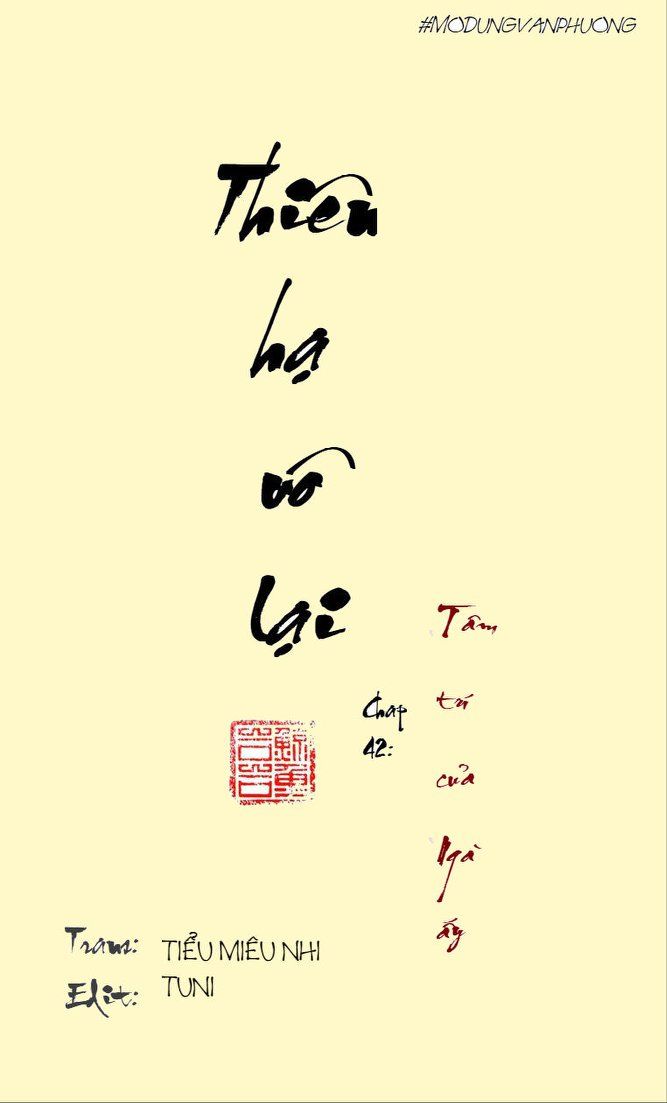 #MODUNGVANPHUONG
Thiên
hạ
vô
lại
Chap
42:
Tâm
trí
của
Ngà
ấy
Trans:
TIỂU MIÊU NHI
Edit:
TUNI